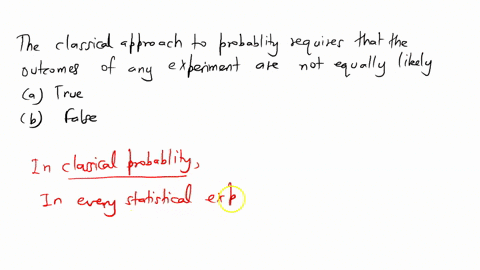 The classical approach to probablity requires that the
outcomes of any experiment are not equally likely
(a) True
(b) False
In classical probablity,
In every statistical exp